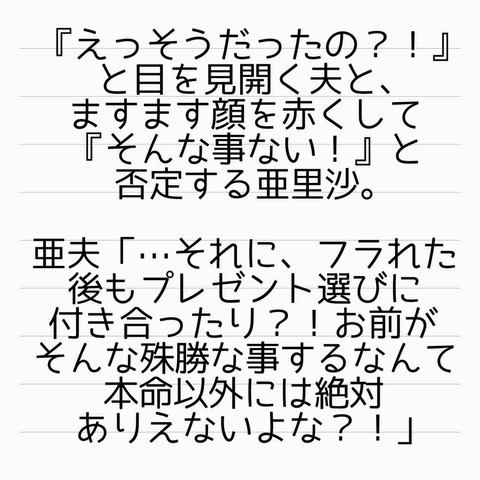 『えっそうだったの？！』
と目を見開く夫と、
ますます顔を赤くして
『そんな事ない！』と
否定する亜里沙。
亜夫「…それに、フラれた
後もプレゼント選びに
付き合ったり？！お前が
そんな殊勝な事するなんて
本命以外には絶対
ありえないよな？！」